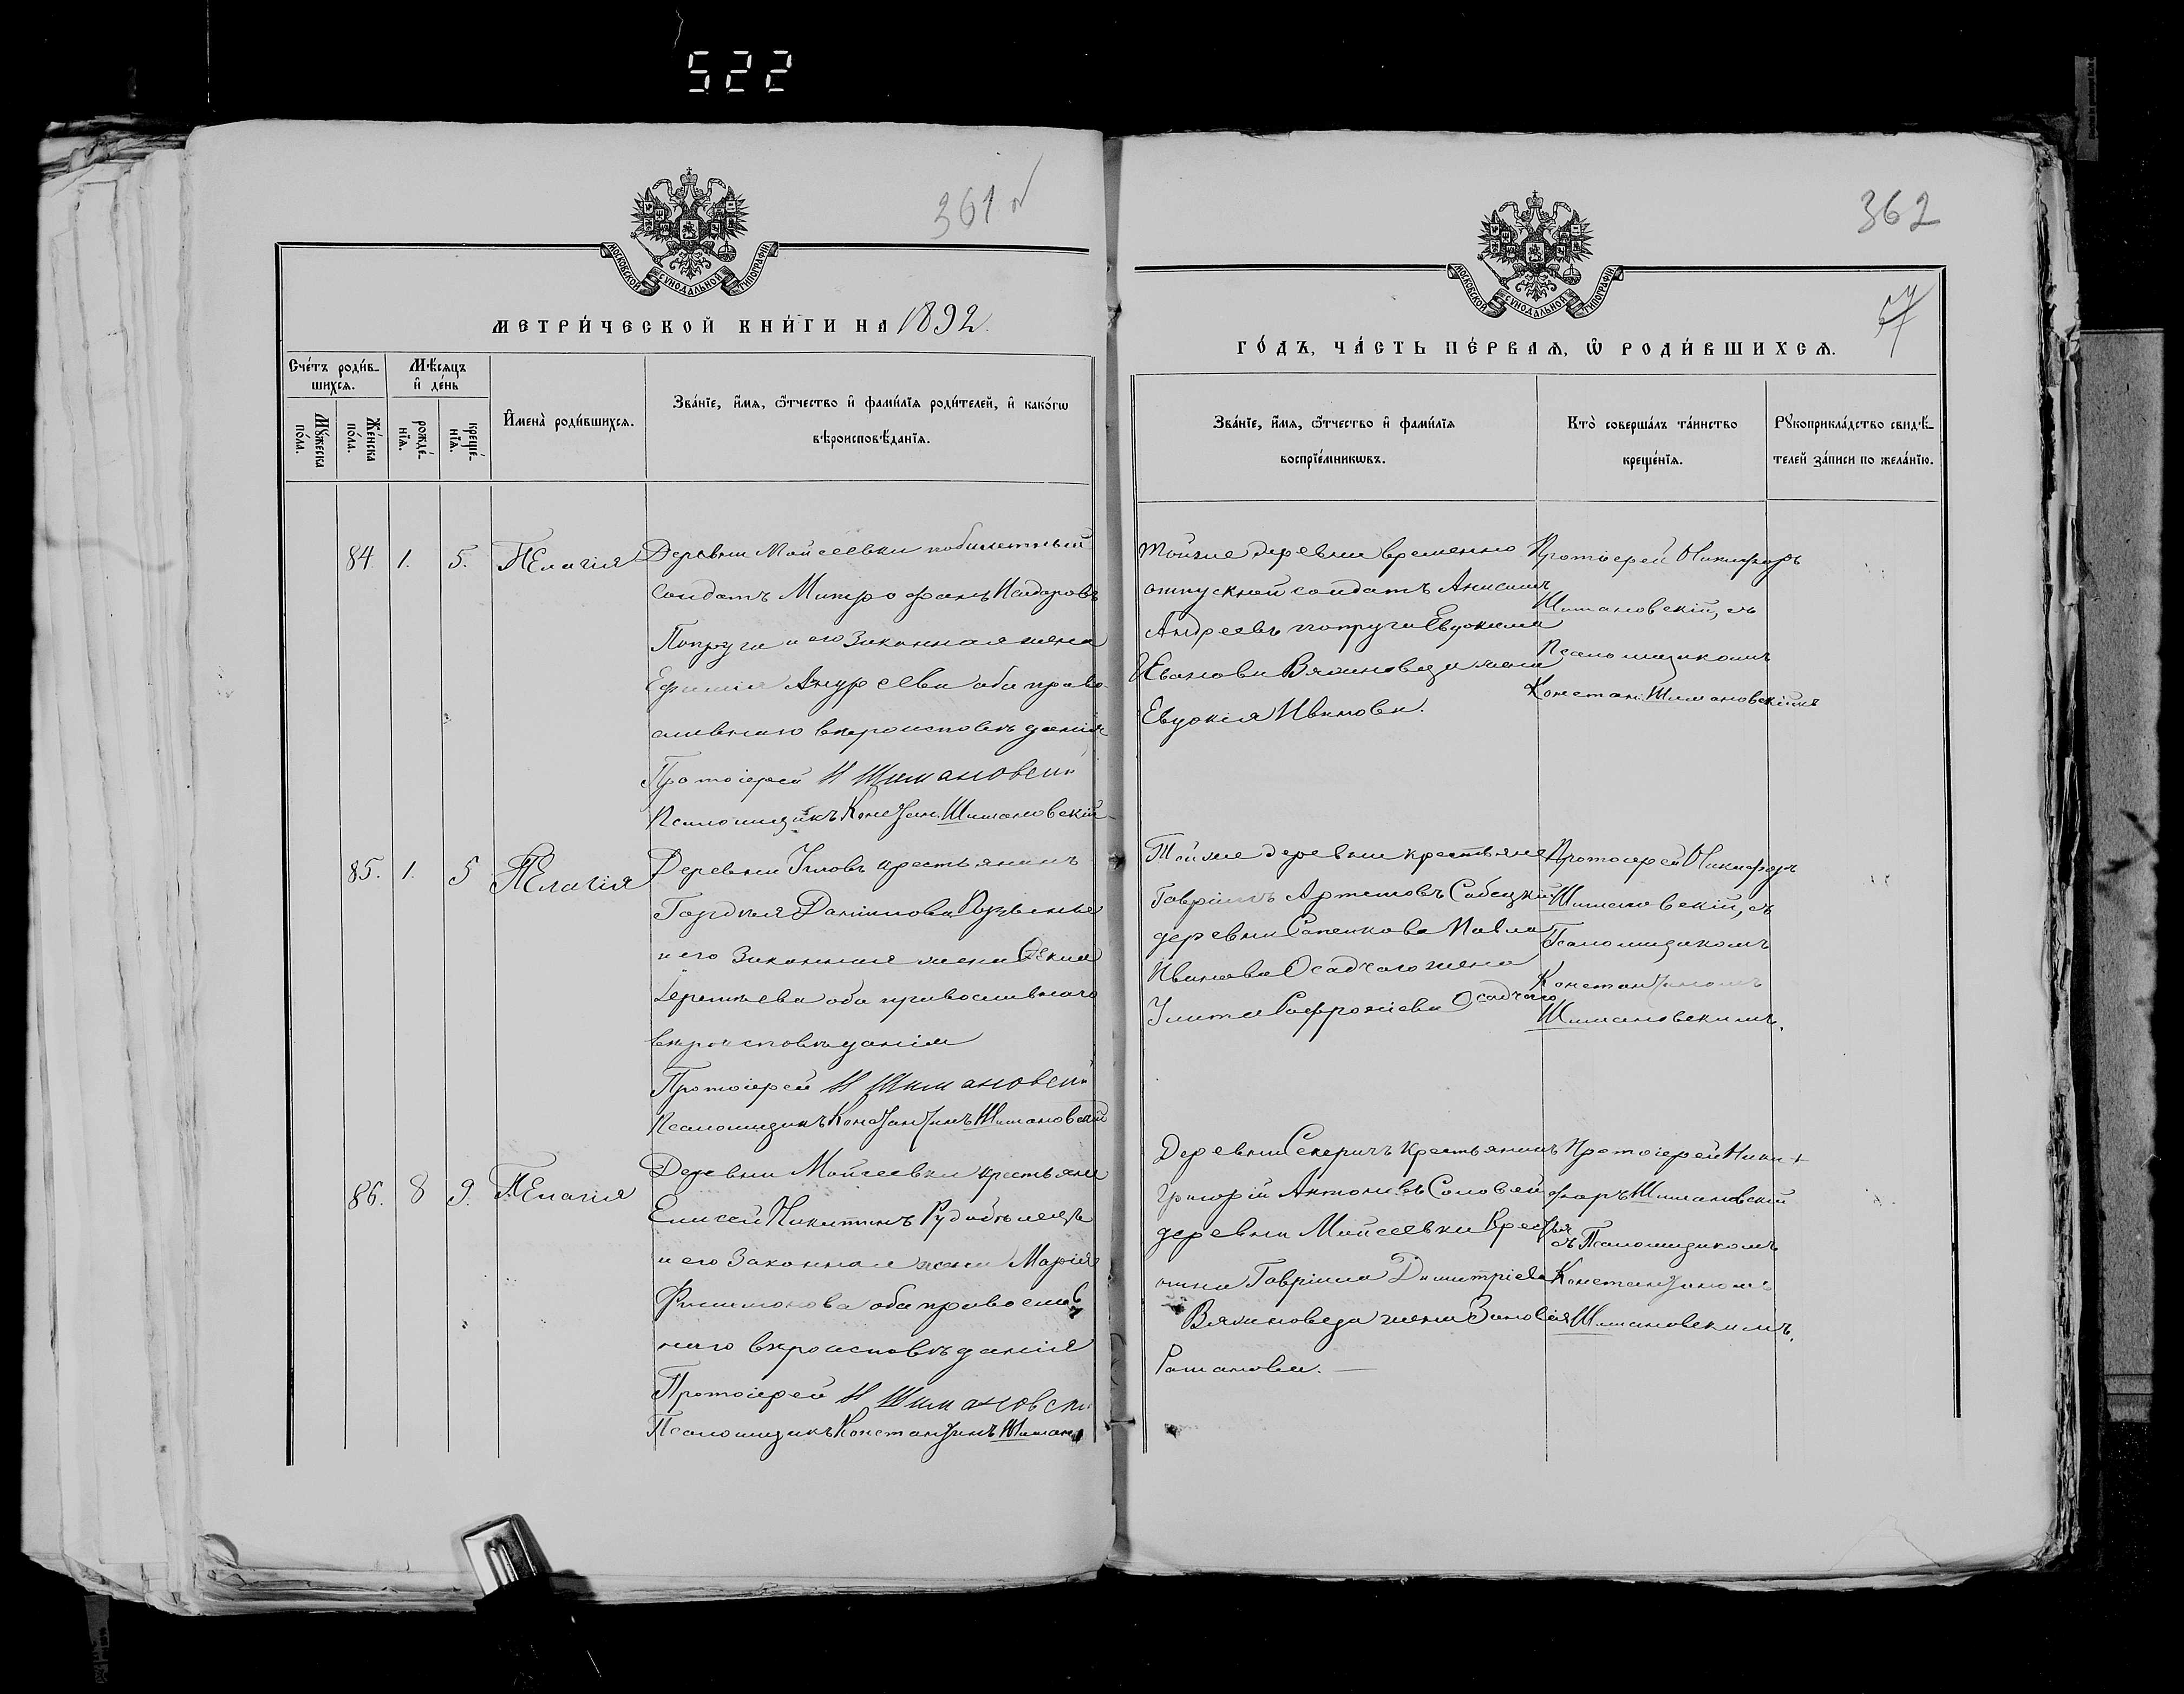 522
361
362
МОСКОВСКОЙ СУНОДАЛЬНОЙ ТИПОГРАФІИ
МОСКОВСКОЙ СУНОДАЛЬНОЙ ТИПОГРАФІИ
МЕТРИ́ЧЕСКОЙ КНИ́ГИ НА 1892.
Сче́тъ роди́в-
шихсѧ.
Мѣ́сѧцъ
и҆ де́нь
Мꙋ́жеска
по́ла.
Же́нска
по́ла.
рожде́-
нїѧ.
креще́-
нїѧ.
И҆мена̀ роди́вшихсѧ.
Зва́нїе, и҆́мѧ, ѻ҆́тчество и҆ фами́лїѧ роди́телей, и҆ како́гѡ
вѣроисповѣ́данїѧ.
84. 1. 5. Пелагія
Деревни Мойсеевки побилетный
солдатъ Митрофанъ Исидоровъ
Попруга и его законная жена
Ефимія Андреева оба право-
славнаго вѣроисповѣданія
Протоіерей Н Шимановскій
Псаломщикъ Констан. Шимановскій
85. 1. 5 Пелагія
Деревни крестьянинъ
Гордѣя Даніилова
и его законная жена
оба православнаго
вѣроисповѣданія
Протоіерей Н Шимановскій
Псаломщикъ Константинъ Шимановскій
86. 8 9. Пелагія
Деревни Мойсеевки крестьяне
Елисей Никитинъ
и его законная жена Марія
Филимонова оба православ
наго вѣроисповѣданія
Протоіерей Н Шимановскій
Псаломщикъ Константинъ Шиман
ГО́ДЪ, ЧА́СТЬ ПЕ́РВАѦ, Ѡ҆ РОДИ́ВШИХСѦ.
Зва́нїе, и҆́мѧ, ѻ҆́тчество и҆ фами́лїѧ
воспрїе́мникѡвъ.
Кто̀ соверша́лъ та́инство
креще́нїѧ.
Рꙋкоприкла́дство свидѣ́-
телей за́писи по жела́нїю.
Тойже деревни временно
отпускной солдатъ Анисимъ
Андреевъ Попруга Евдокима
Иванова Вяхиновеца жена
Евдокія Иванова.
Протоіерей Никифоръ
Шимановскій, съ
Псаломщикомъ
Констан. Шимановскимъ
Тойже деревни крестьяне
Гавріилъ Артемовъ Сабецкій
деревни Сапенкова Павла
Иванова Осадчаго жена
Улита Осадчаго
Протоіерей Никифоръ
Шимановскій, съ
Псаломщикомъ
Константиномъ
Шимановскимъ.
Деревни Секеричъ крестьянинъ
Григорій Антоновъ Соловей
деревни Мойсеевки крестья
нина Гавріила Димитріева
Вяхиновеца жена Зиновія
Романова.
Протоіерей Ники
форъ Шимановскій
съ Псаломщикомъ
Константиномъ
Шимановскимъ.